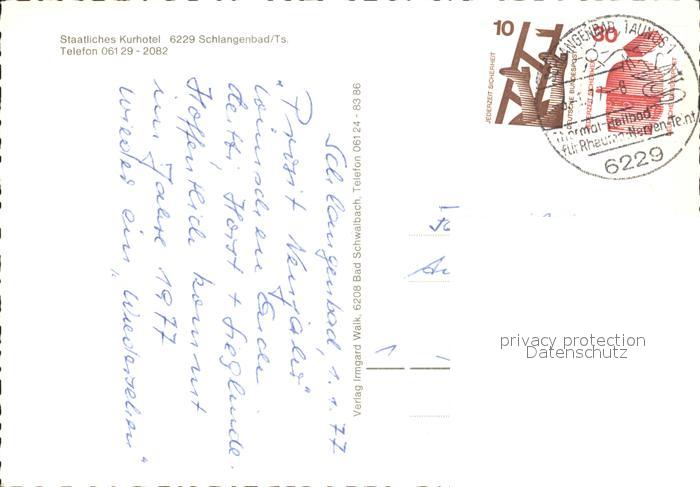 Staatliches Kurhotel 6229 Schlangenbad/Ts.
Telefon 06129 - 2082
Schlangenbad, 1.1.77
"Prosit Neujahr"
wünschen Euch
Horst + Sieglinde.
Hoffentlich kommt
im Jahre 1977
wieder ein "Wiedersehen"
Verlag Irmgard Walk, 6208 Bad Schwalbach, Telefon 06124 - 8386
10
JEDERZEIT SICHERHEIT
DEUTSCHE BUNDESPOST
SCHLANGENBAD, TAUNUS 1
Thermal-Heilbad
für Rheuma-Nerven-Teint
6229
privacy protection
Datenschutz